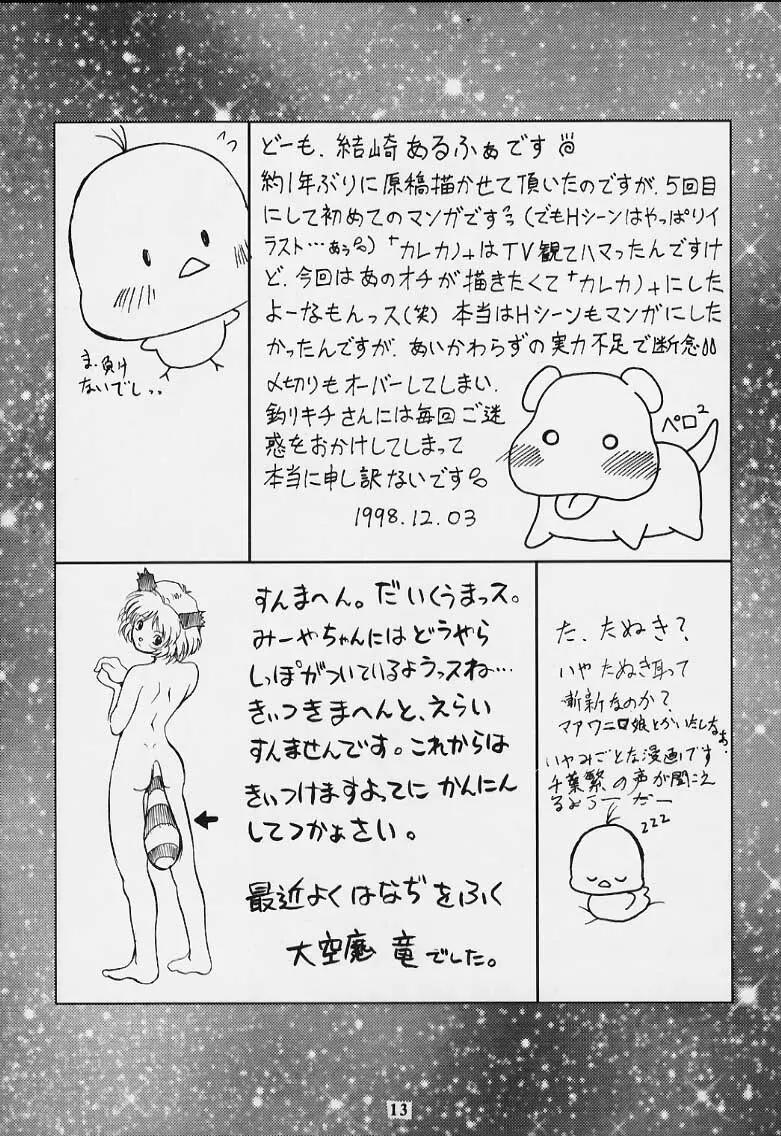 どーも、結崎あるふぁです
約1年ぶりに原稿描かせて頂いたのですが、5回目
にして初めてのマンガですっ(でもHシーンはやっぱりイ
ラスト…あぅ)「カレカノ」はTV観てハマったんですけ
ど、今回はあのオチが描きたくて「カレカノ」にした
よーなもんっス(笑) 本当はHシーンもマンガにした
かったんですが、あいかわらずの実力不足で断念
〆切りもオーバーしてしまい、
釣りキチさんには毎回ご迷
惑をおかけしてしまって
本当に申し訳ないです
1998.12.03
ペロ2
ま、負け
ないでし
すんまへん。だいくうまっス。
みーやちゃんにはどうやら
しっぽがついているようっスね…
きぃつきまへんと、えらい
すんませんです。これからは
きぃつけますよってに かんにん
してつかぁさい。
最近よくはなぢをふく
大空魔 竜でした。
た、たぬき?
いや たぬき耳って
斬新なのか?
マアワニ口娘とかいたしなぁ、
いやみごとな漫画です
千葉繁の声が聞こえ
るようーだー
zzz
13